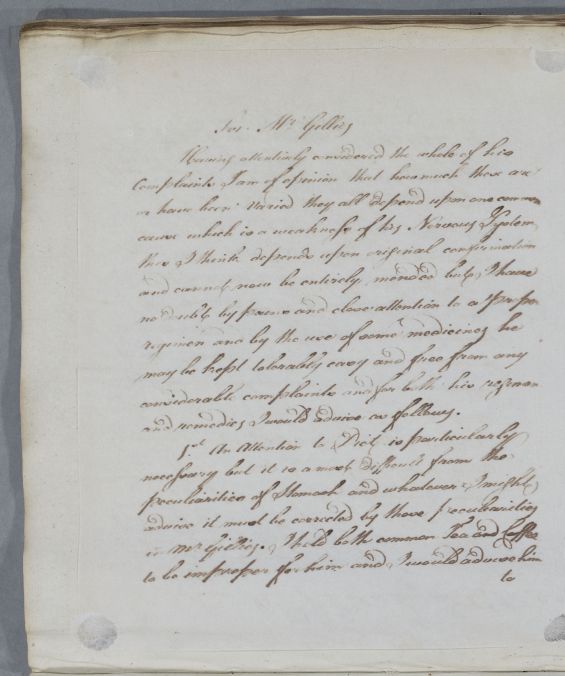 For Mr Gillies
Having attentively considered the whole of his
Complaints I am of opinion that how much these are
or have been varied they all depend upon one common
cause which is a weakness of his Nervous System,
this I think depends upon original
and cannot now be entirely mended but I have
no doubt by prune and close attention to a proper
regimen and by the use of some medicines he
may be kept tolerably easy and free from any
considerable complaints and for both his regimen
and remedies I would advise as follows.
1st An Attention to Diet is particularly
necessary but it is a most difficult from the
peculiarities of Stomach and whatever I might
advise it must be corrected by those peculiarities
in Mr Gillies. I hold both common Tea and Coffee
to be improper for him and I would advise him
to